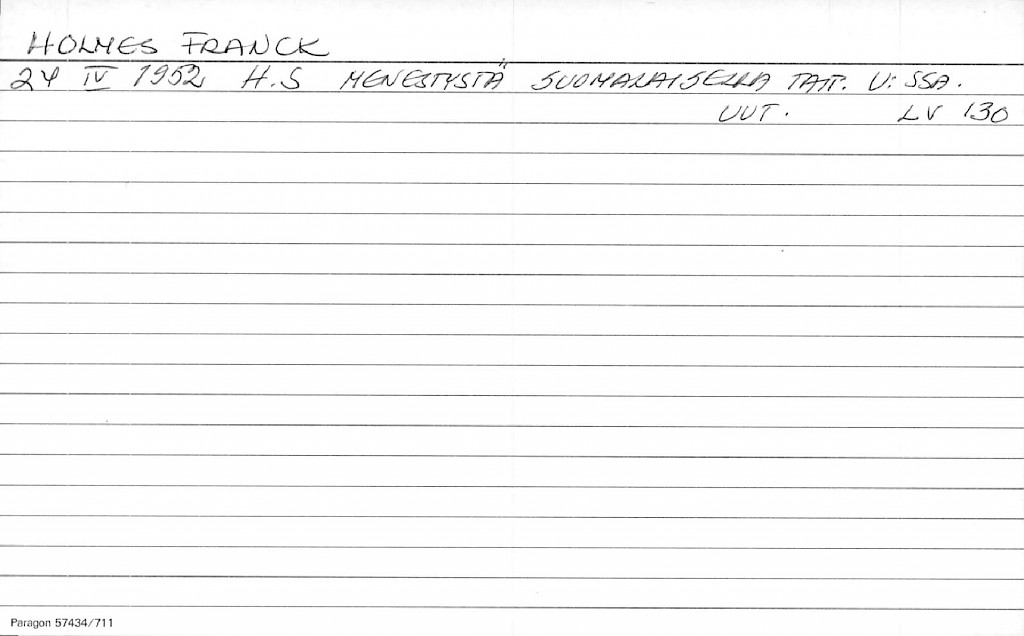 HOLMES FRANCK
24 IV 1952 H.S MENESTYSTÄ SUOMALAISELLA TAIT. U:SSA.
UUT. LV 130
Paragon 57434/711